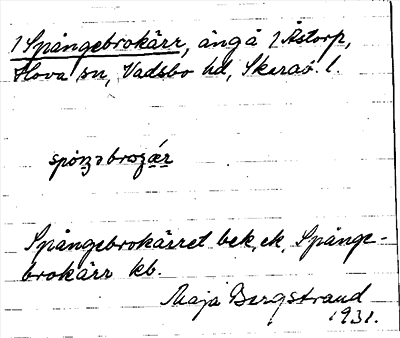 1 Spångebrokärr, ängå 2 Åstorp,
Hova sn, Vadsbo hd, Skarab. l.
Spångebrokärret bek. ek. Spånge-
brokärr kb.
Maja Bergstrand
1931.